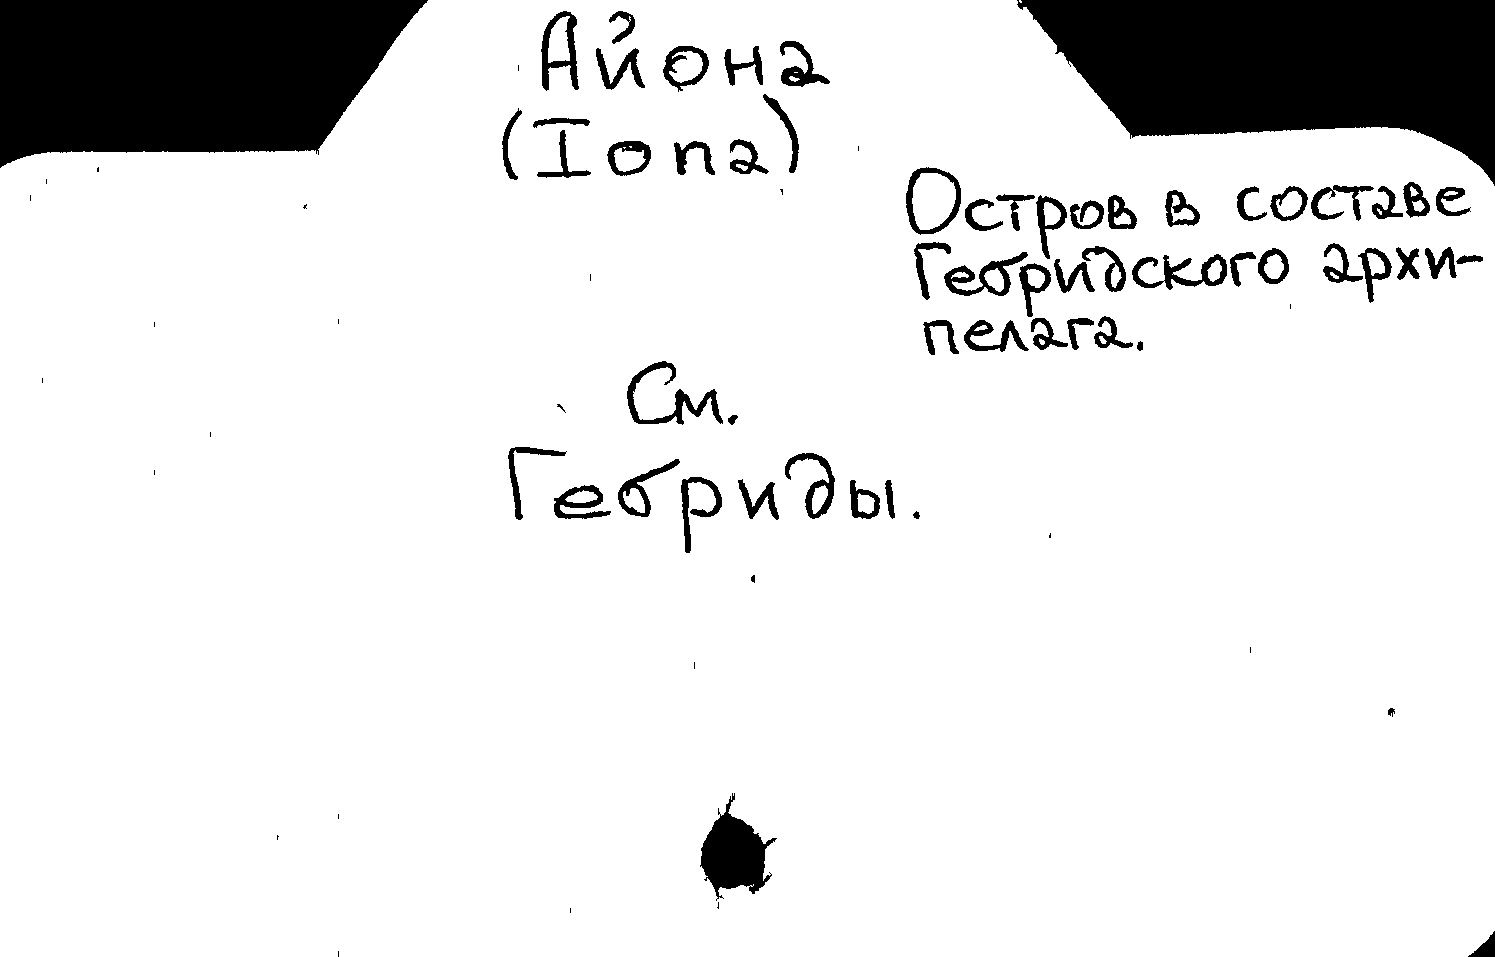 Айона
(Iona)
Остров в составе
Гебридского архи-
пелага.
См.
Гебриды.